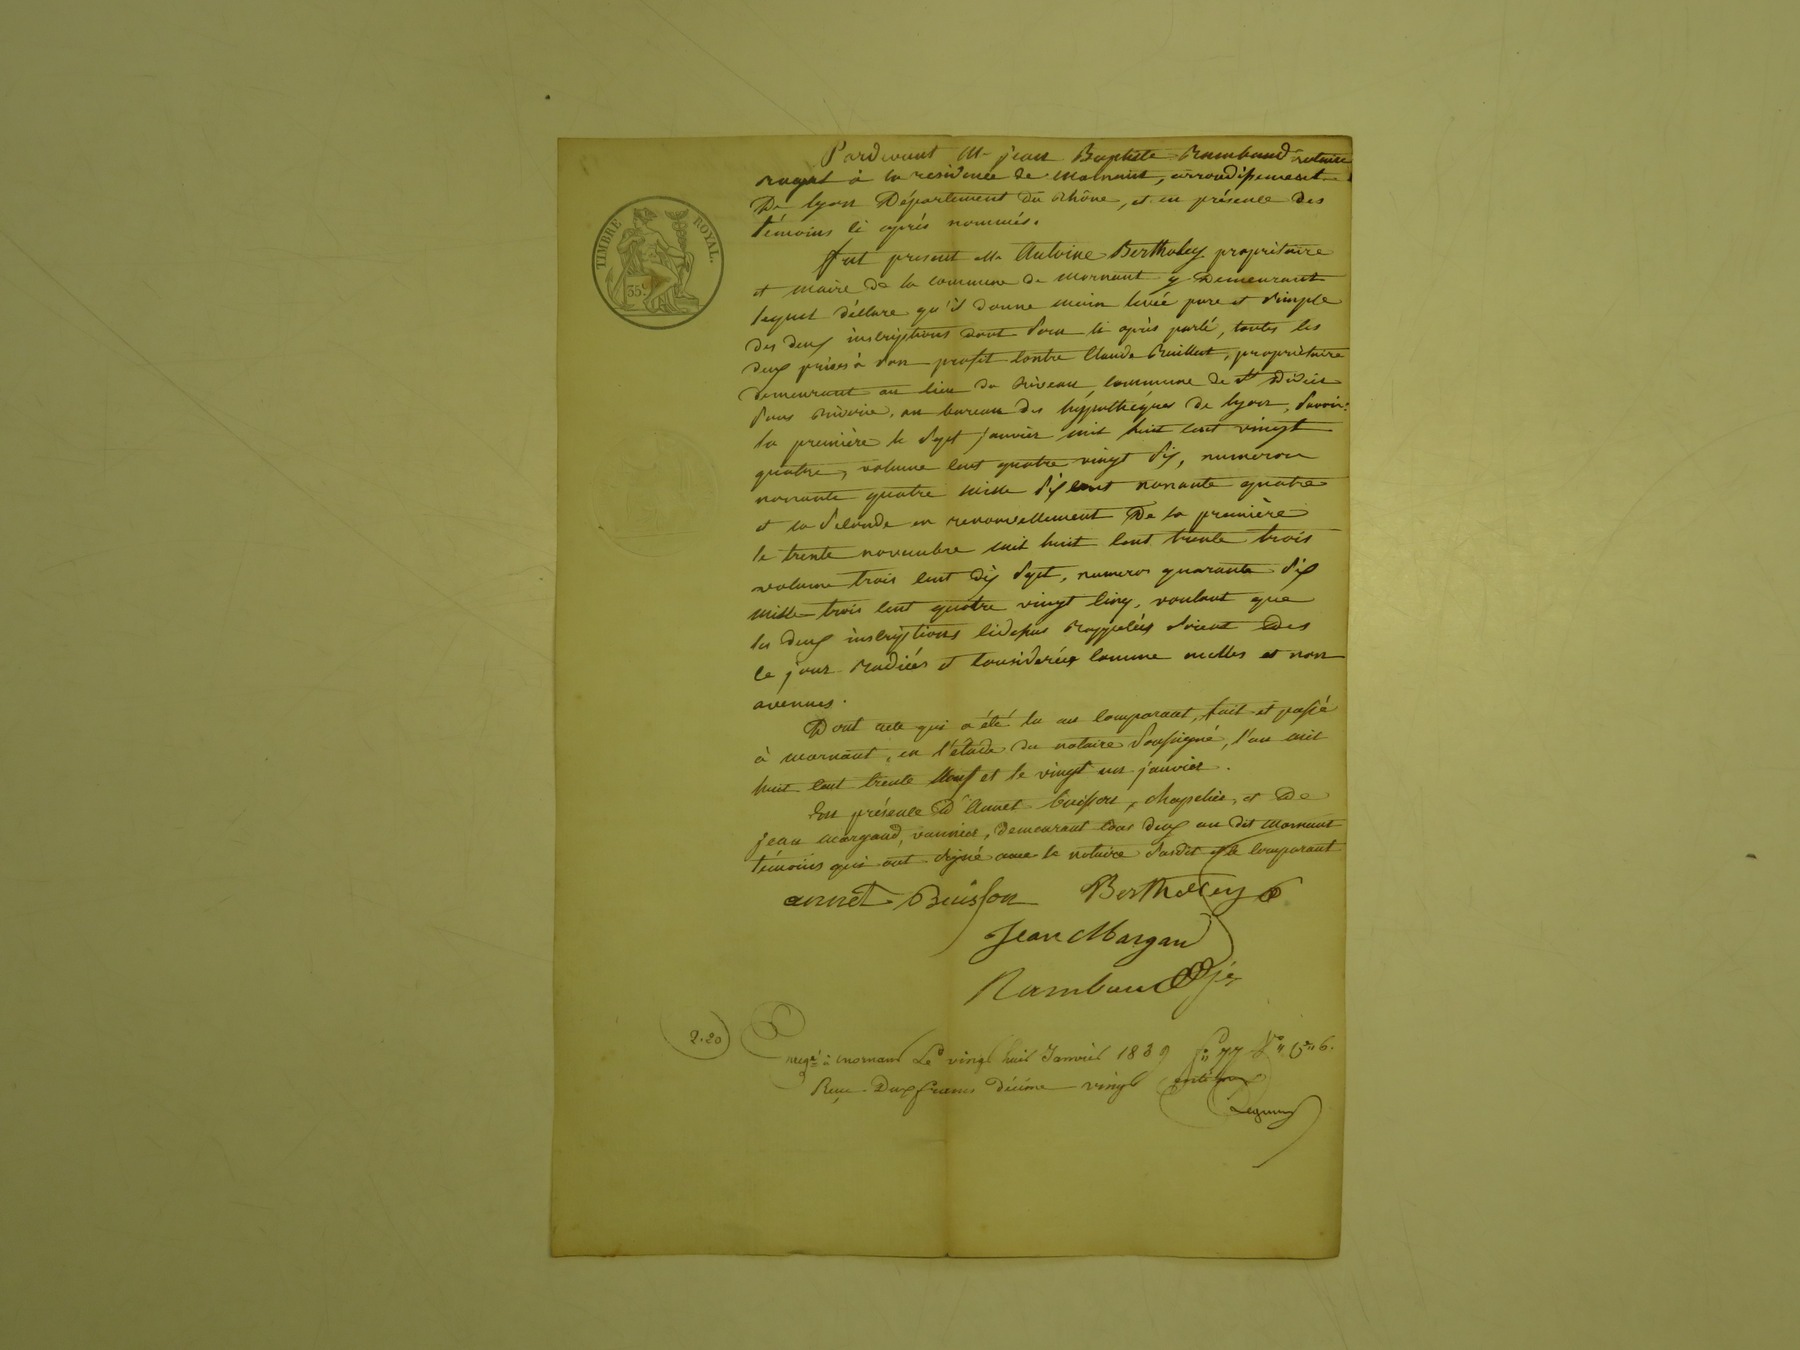 TIMBRE ROYAL.
35c
Pardevant Me jean Baptiste Rambaud notaire
royal à la residence de Mornant, arrondissement
De lyon Département du Rhône, et en présence des
témoins ci après nommés.
fut present Mr Antoine Bertholey propriétaire
et maire de la commune de Mornant y Demeurant
lequel déclare qu'il donne main levée pure et simple
des deux inscriptions dont sera ci après parlé, toutes les
deux prises à son profit contre Claude Guillot, propriétaire
demeurant au lieu du Niveau, commune de St Didier
sous Riverie, au bureau des hypothèques de lyon, savoir:
la première le sept janvier mil huit cent vingt
quatre, volume cent quatre vingt six, numeros
nonante quatre mille six cent nonante quatre
et la seconde en renouvellement De la première
le trente novembre mil huit cent trente trois
volume trois cent dix sept, numeros quarante six
mille trois cent quatre vingt cinq, voulant que
les deux inscriptions cidessus rappelées soient Des
ce jour radiées et considerées comme nulles et non
avenues.
Dont acte qui a été lu au comparant, fait et passé
à mornant, en l'étude du notaire soussigné, l'an mil
huit cent trente neuf et le vingt un janvier.
En présence D'Annet buisson, chapelier, et De
jean margand, vannier, demeurant tous deux au dit Mornant
témoins qui ont signé avec le notaire susdit et le comparant
annet Buisson Bertholey
Jean Margan
Rambaud
2.20
Enregé à mornant Le vingt huit Janvier 1839 fo 77 Vo Ce 6.
Reçu Deux francs décime vingt centimes